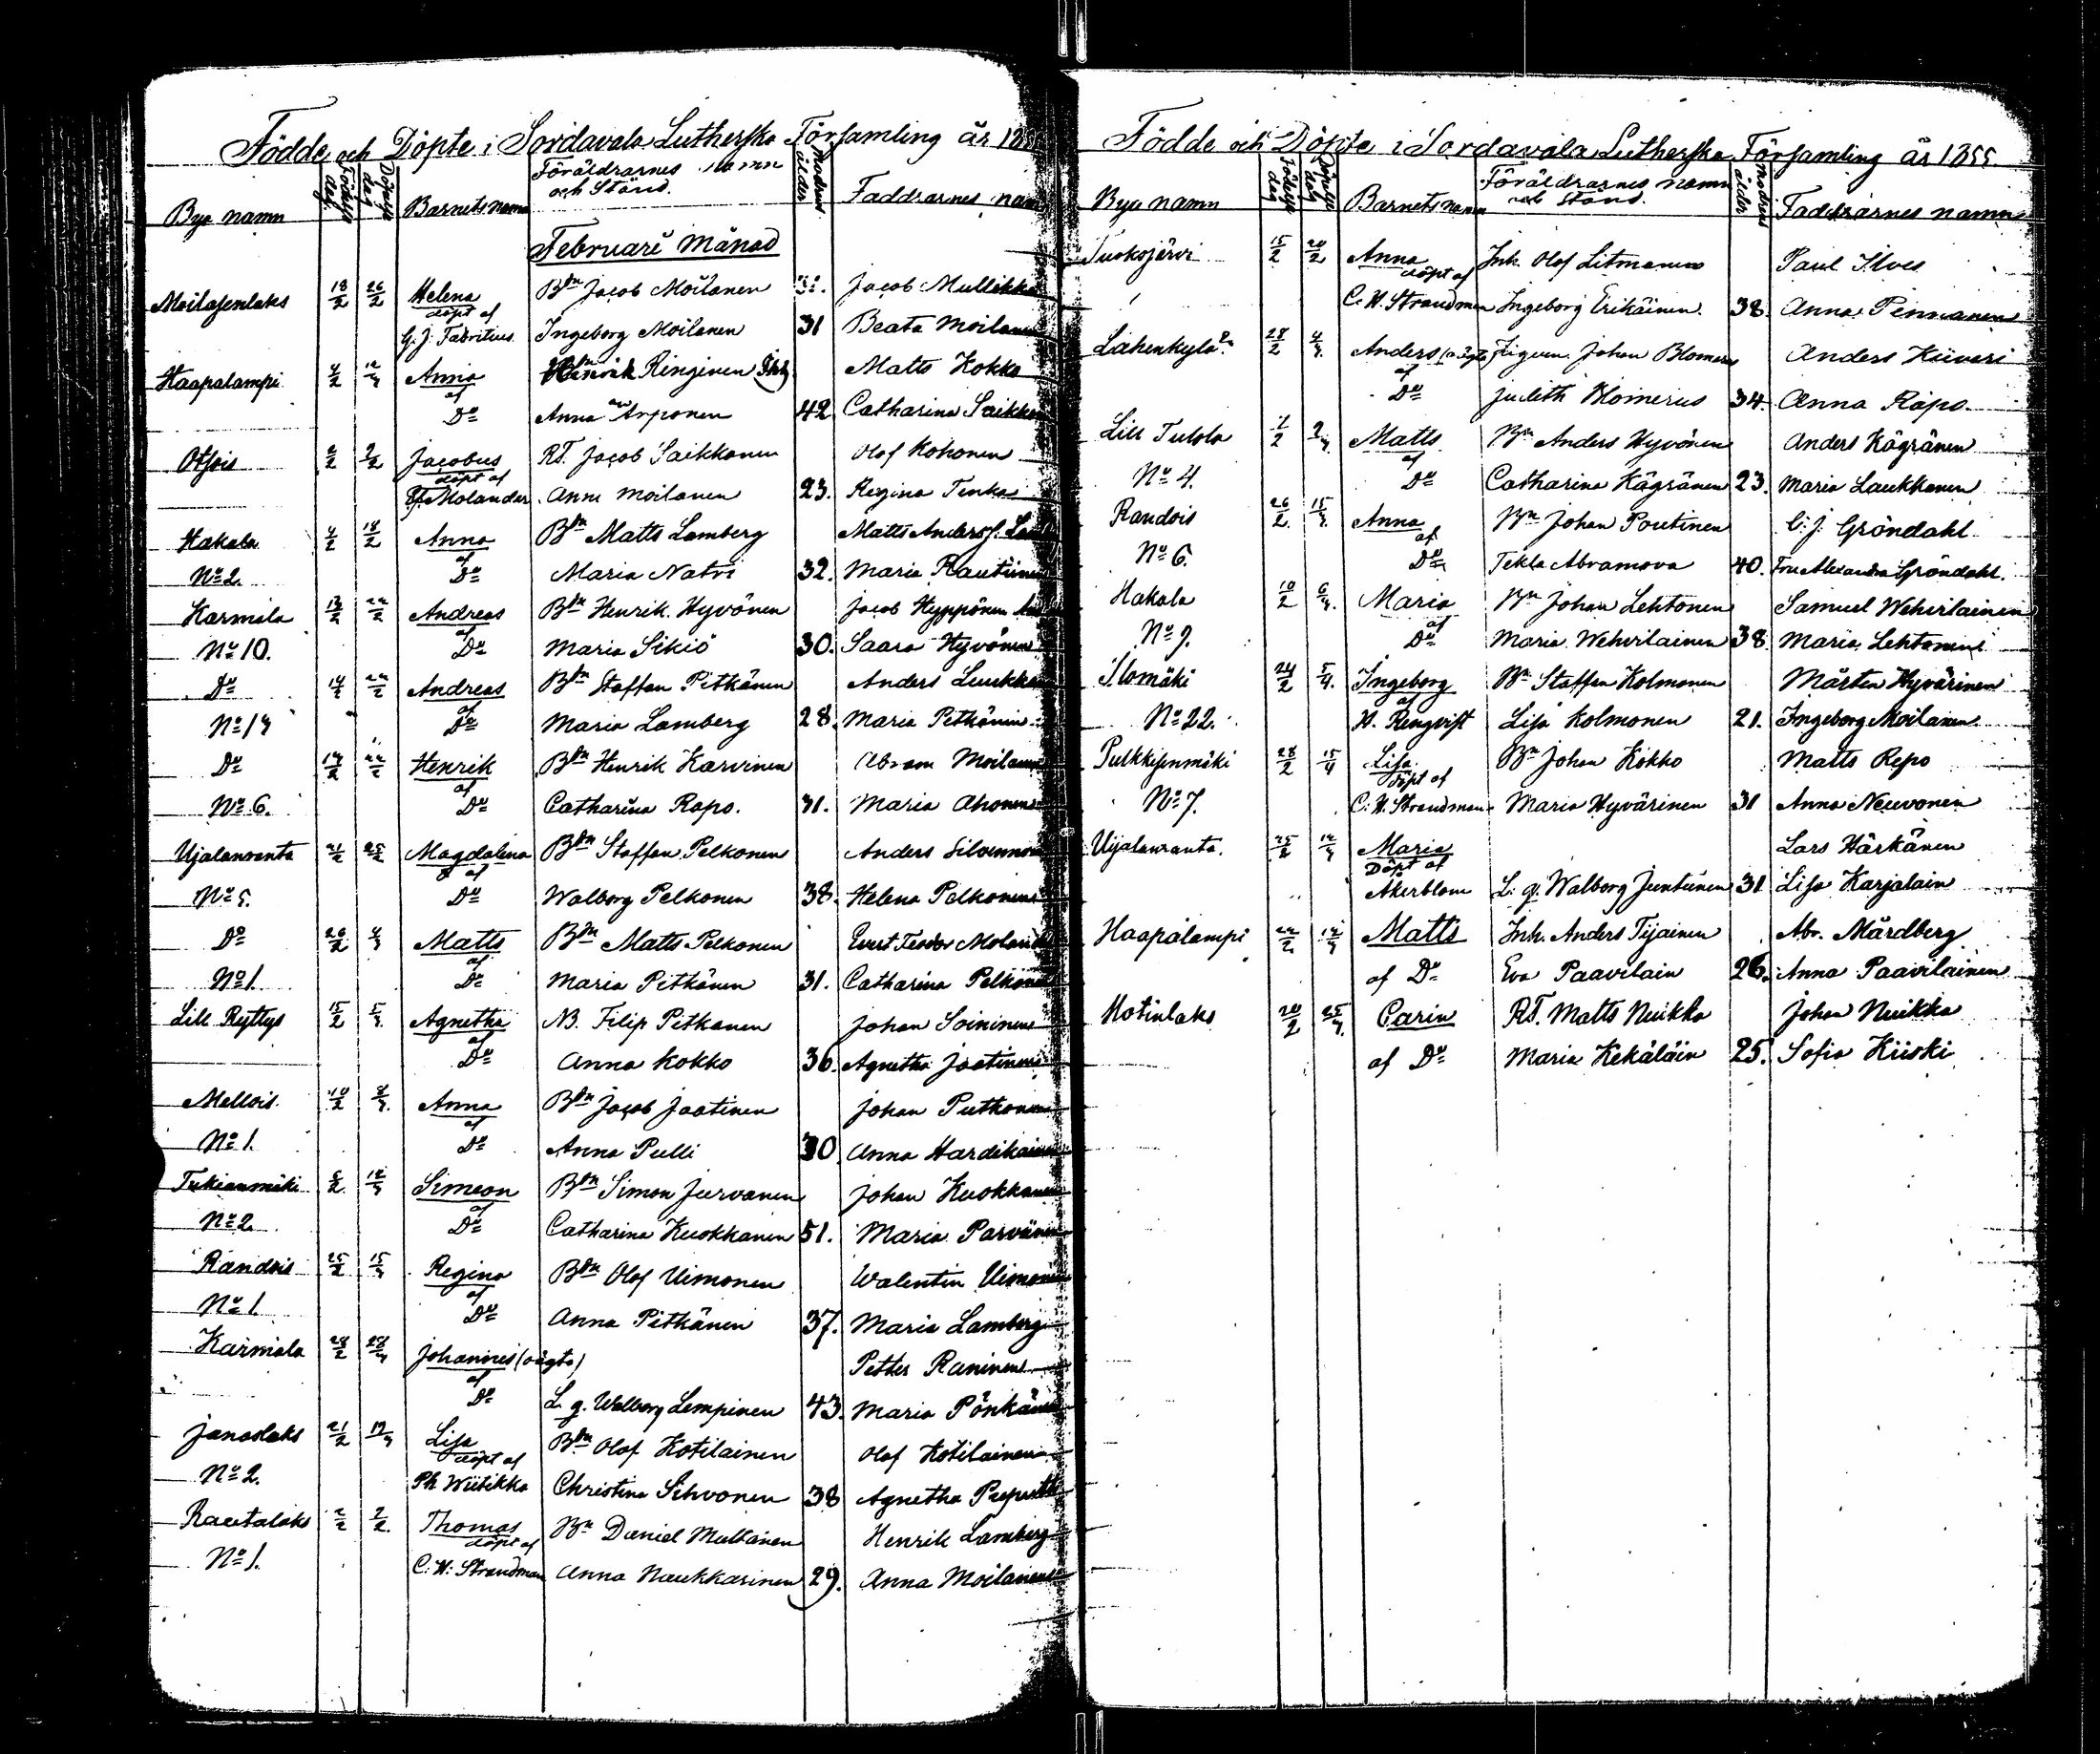 Födde och Döpte i Sordavala Lutherska Församling år 1855
Bya namn Födelse dag Döpelse dag Barnets namn Föräldrarnes namn och Stånd. Modrens ålder Faddrarnes namn
Februari Månad
Moilasenlaks 18/2 26/2 Helena Bdn Jacob Moilanen Jacob Mullikka
döpt af
G. J. Fabritius Ingeborg Moilanen 31 Beata Moilanen
Haapalampi 4/2 Anna Ringinen Inh Matts Kokko
af
Do Anna Arponen 42 Catharina Saikko
Otsois 2/2 Jacobus RT. Jacob Saikkonen Olof Kohonen
döpt af
Molander Anna Moilanen 23. Regina Tenka
Hakala 4/2 18/2 Anna Bdn Matts Lamberg Matts Anderss. Lam
af
No 2. Do Maria Natri 32. Maria Rautiinen
Karmala 13/2 22/2 Andreas Bdn Henrik Hyvönen Jacob Hyppönen
af
No 10. Do Maria Sikiö 30. Saara Hyvönen
Do 14/2 22/2 Andreas Bdn Staffan Pitkänen Anders Luukko
af
No 14 Do Maria Lamberg 28. Maria Petkänin
Do 14/2 22/2 Henrik Bdn Henrik Karvinen Abram Moilanen
af
No 6. Do Catharina Rapo. 31. Maria Ahonen
Ujalanranta 21/2 25/2 Magdalena Bdn Staffan Pelkonen Anders Silvennoin
af
No 5. Do Walborg Pelkonen 38. Helena Pelkonen
Do 26/2 4/3 Matts Bdn Matts Pelkonen Evert Teodor Moland
af
No 1. Do Maria Pitkänen 31. Catharina Pelkonen
Lill Ryttys 15/2 5/3. Agnetha NB. Filip Pitkanen Johan Soininen
af
Do Anna Kokko 36. Agnetha Jaatinen
Mellois 10/2 8/3. Anna Bdn Jacob Jaatinen Johan Putkonen
af
No 1. Do Anna Pulli 30 Anna Hardikainen
Tukianmäki 5/2 12/3 Simeon Bdn Simon Jurvanen Johan Kuokkanen
af
No 2. Do Catharina Kuokkanen 51. Maria Parvänen
Randois 25/2 15/3 Regina Bdn Olof Uimonen Walentin Uimonen
af
No 1. Do Anna Pitkänen 37. Maria Lamberg
Karmala 28/2 Johannes (oägta) Petter Raninen
af
Do L. q. Walborg Lempinen 43. Maria Pönkänen
Janaslaks 21/2 Lisa Bdn Olof Kotilainen Olof Kotilainen
döpt af
No 2. Ph Wiitikka Christina Sihvonen 38 Agnetha
Rautalaks 2/2 7/2. Thomas Bn Daniel Multanen Henrik Lamberg
döpt af
No 1. C. H. Strandman Anna Naukkarinen 29. Anna Moilanen
Födde och Döpte i Sordavala Lutherska Församling år 1855.
Bya namn Födelse dag Döpelse dag Barnets namn Föräldrarnes namn och Stånd. Modrens ålder Faddrarnes namn
Tuoksjärvi 15/2 20/2 Anna Inh. Olof Litmanen Paul Ilves
döpt af
C. H. Strandman Ingeborg Erikäinen. 38. Anna Pennanen
Lahenkylä 28/2 4/3. Anders (oägta) Johan Blomerus Anders Kiiveri
af
Do Judith Blomerus 34. Anna Rapo.
Lill Tulola 1/2 2/3 Matts Bn Anders Hyvönen Anders Kägränen
af
No 4. Do Catharina Kägränen 23. Maria Laukkanen
Randois 26/2. 15/3. Anna Bn Johan Poutinen C. J. Gröndahl
af
No 6. Do Tekla Abramova 40. Fru Alexandra Gröndahl.
Hakala 10/2 6/3. Maria Bn Johan Lehtonen Samuel Wehvilainen
af
No 9. Do Maria Wehvilainen 38. Maria Lehtonen
Ilomäki 24/2 5/4. Ingeborg Bn Staffan Kolmonen Mårten Hyvärinen
af
No 22. H. Rengvist Lisa Kolmonen 21. Ingeborg Moilanen.
Pulkkisenmäki 28/2 15/4 Lisa Bn Johan Kokko Matts Repo
döpt af
No 7. C. H. Strandman Maria Hyvärinen 31 Anna Neuvonen
Uijalanranta. 25/2 12/3 Maria Lars Härkänen
Döpt af
Åkerblom L. q. Walborg Juntunen 31 Lisa Karjalain
Haapalampi 22/2 12/3 Matts Inh. Anders Tijainen Abr. Mårdberg
af Do Eva Paavilain 26. Anna Paavilainen
Hotinlaks 20/2 25/3. Carin RT. Matts Nuikka Johan Nuikka
af Do Maria Kekäläin 25. Sofia Kiiski